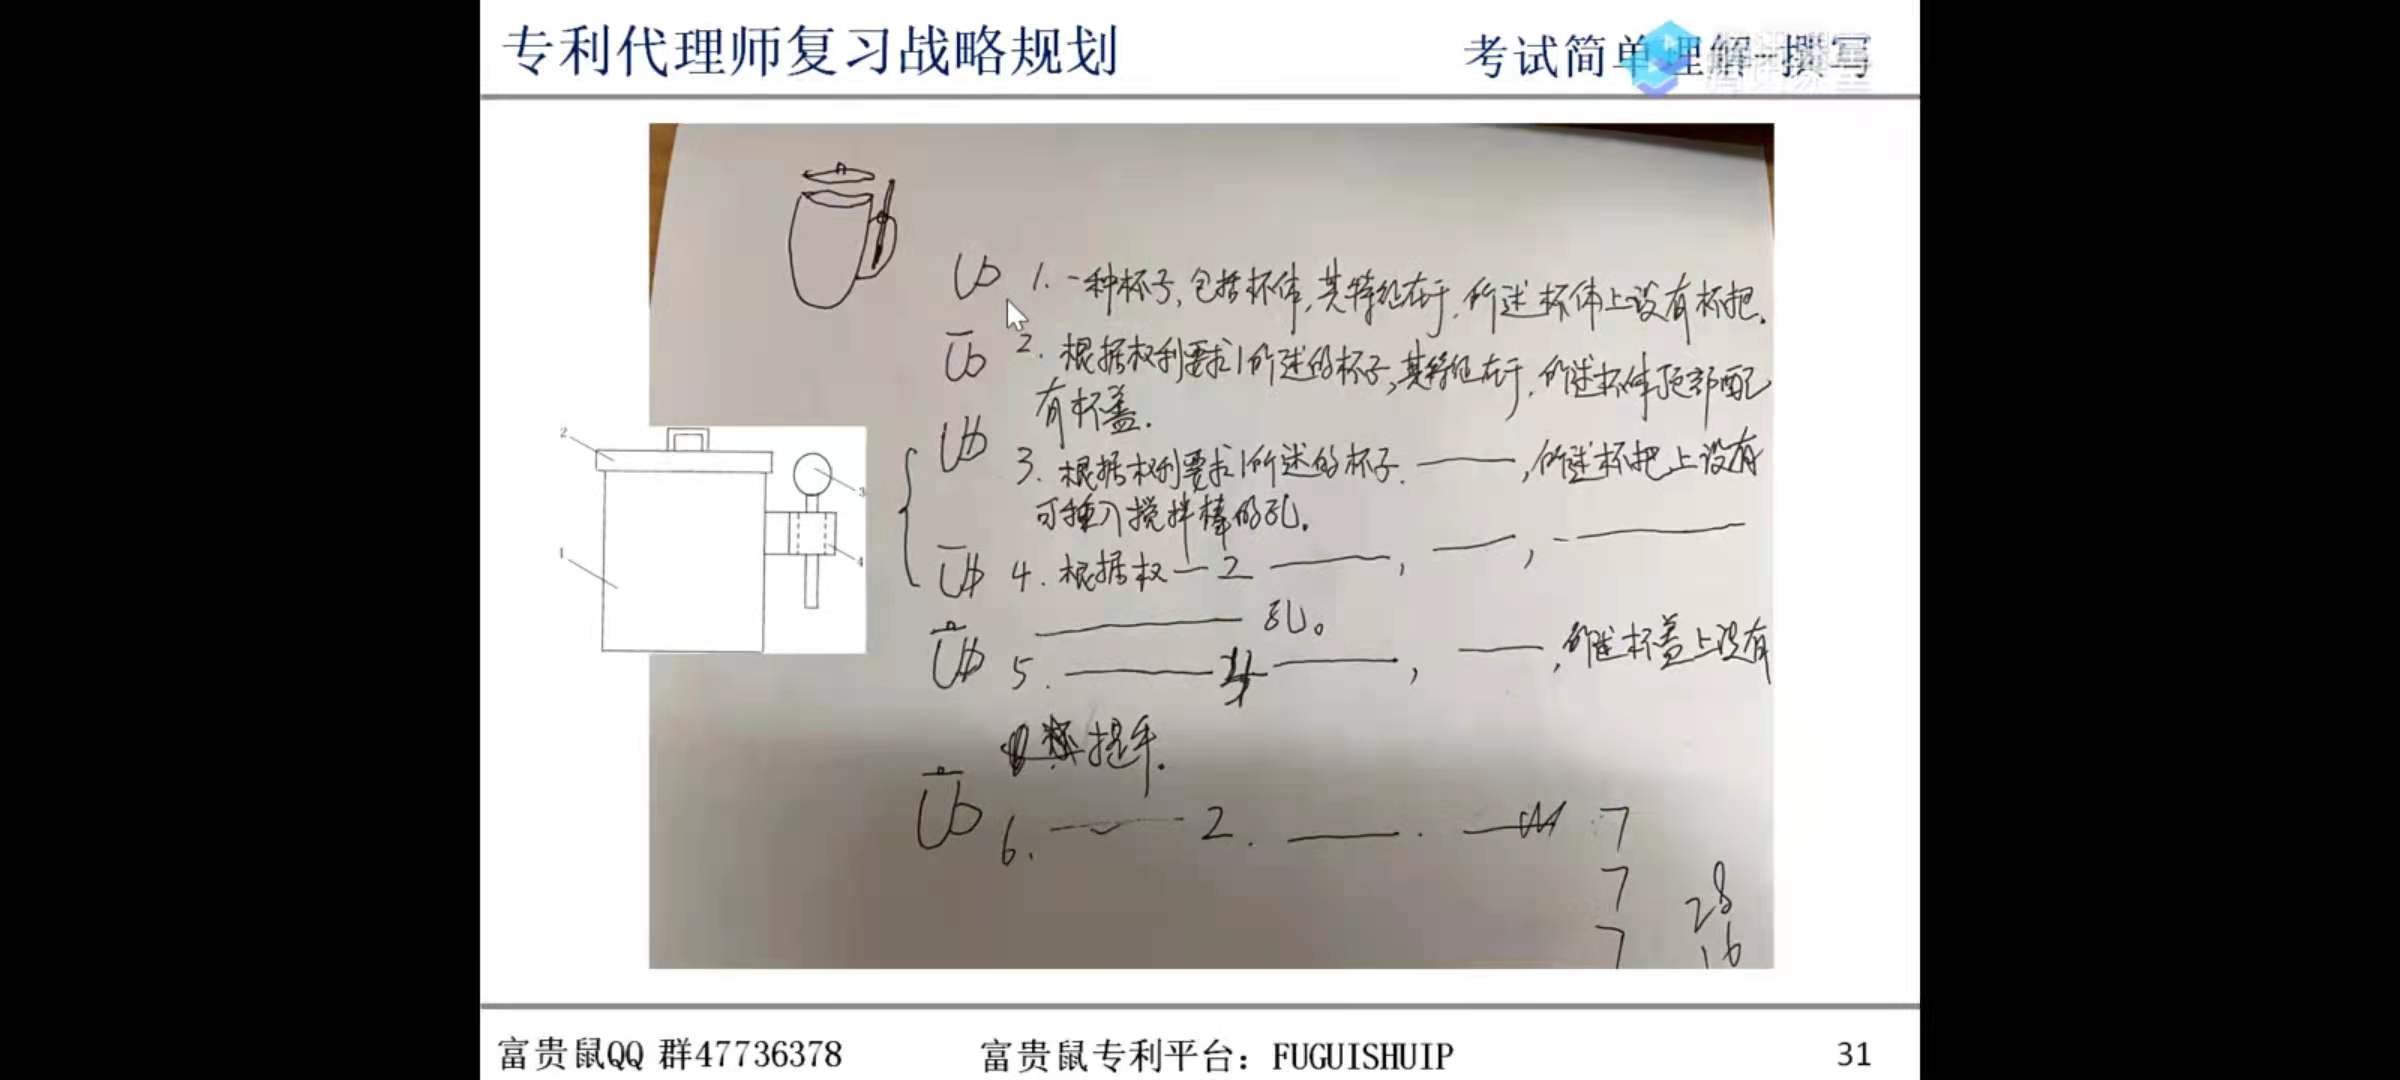 专利代理师复习战略规划
考试简单理解-撰写
1. 一种杯子,包括杯体,其特征在于,所述杯体上设有杯把.
2. 根据权利要求1所述的杯子,其特征在于,所述杯体顶部配
有杯盖.
3. 根据权利要求1所述的杯子. ——,所述杯把上设有
可插入搅拌棒的孔.
4. 根据权—2——, ——, ——
—— 孔。
5. ——4——, ——,所述杯盖上设有
提手.
6. —— 2. ——. —— 7
7
28
7
16
2
3
1
4
富贵鼠QQ 群47736378
富贵鼠专利平台: FUGUISHUIP
31